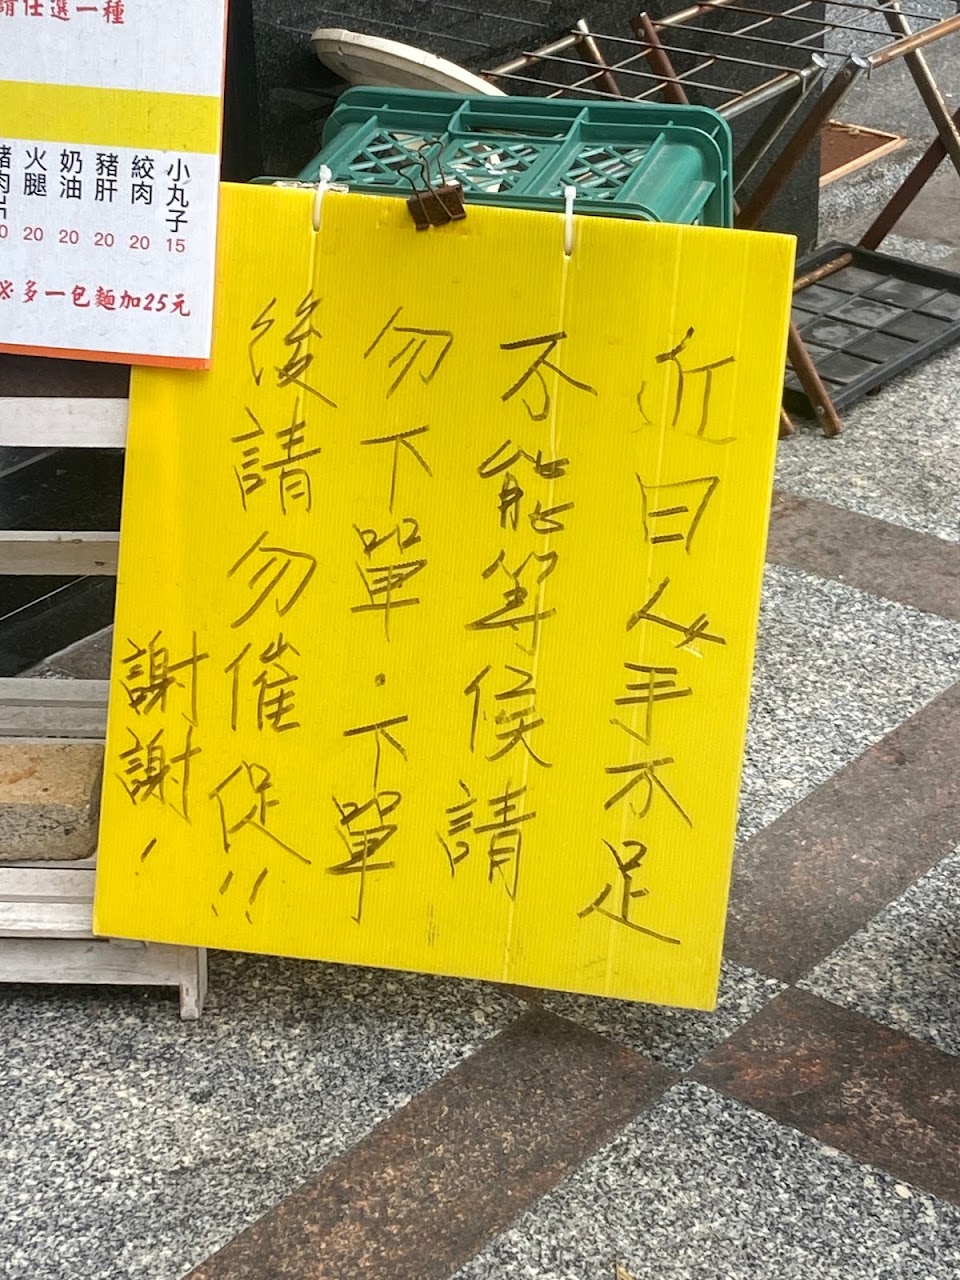 近日人手不足
不能等候請
勿下單.下單
後請勿催促!!
謝謝!
請任選一種
小丸子 15
絞肉 20
豬肝 20
奶油 20
火腿 20
豬肉片
※多一包麵加25元